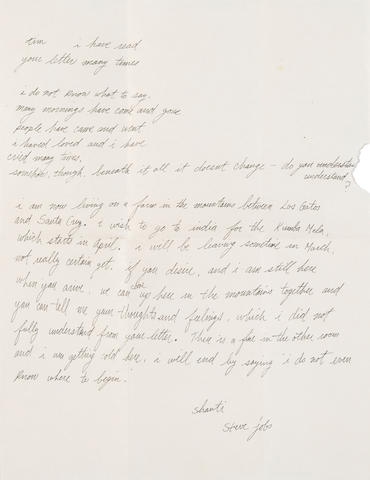 tim i have read
your letter many times
i do not know what to say.
many mornings have come and gone
people have came and went
i haved loved and i have
cried many times.
somehow, though, beneath it all it doesnt change - do you understand
understand?
i am now living on a farm in the mountains between Los Gatos
and Santa Cruz. i wish to go to india for the Kumba Mela,
which starts in april. i will be leaving sometime in March,
not really certain yet. if you desire, and i am still here
when you arive, we can be up here in the mountains together and
you can tell me your thoughts and feelings, which i did not
fully understand from your letter. There is a fire in the other room
and i am getting cold here. i will end by saying "i do not even
know where to begin."
shanti
steve jobs